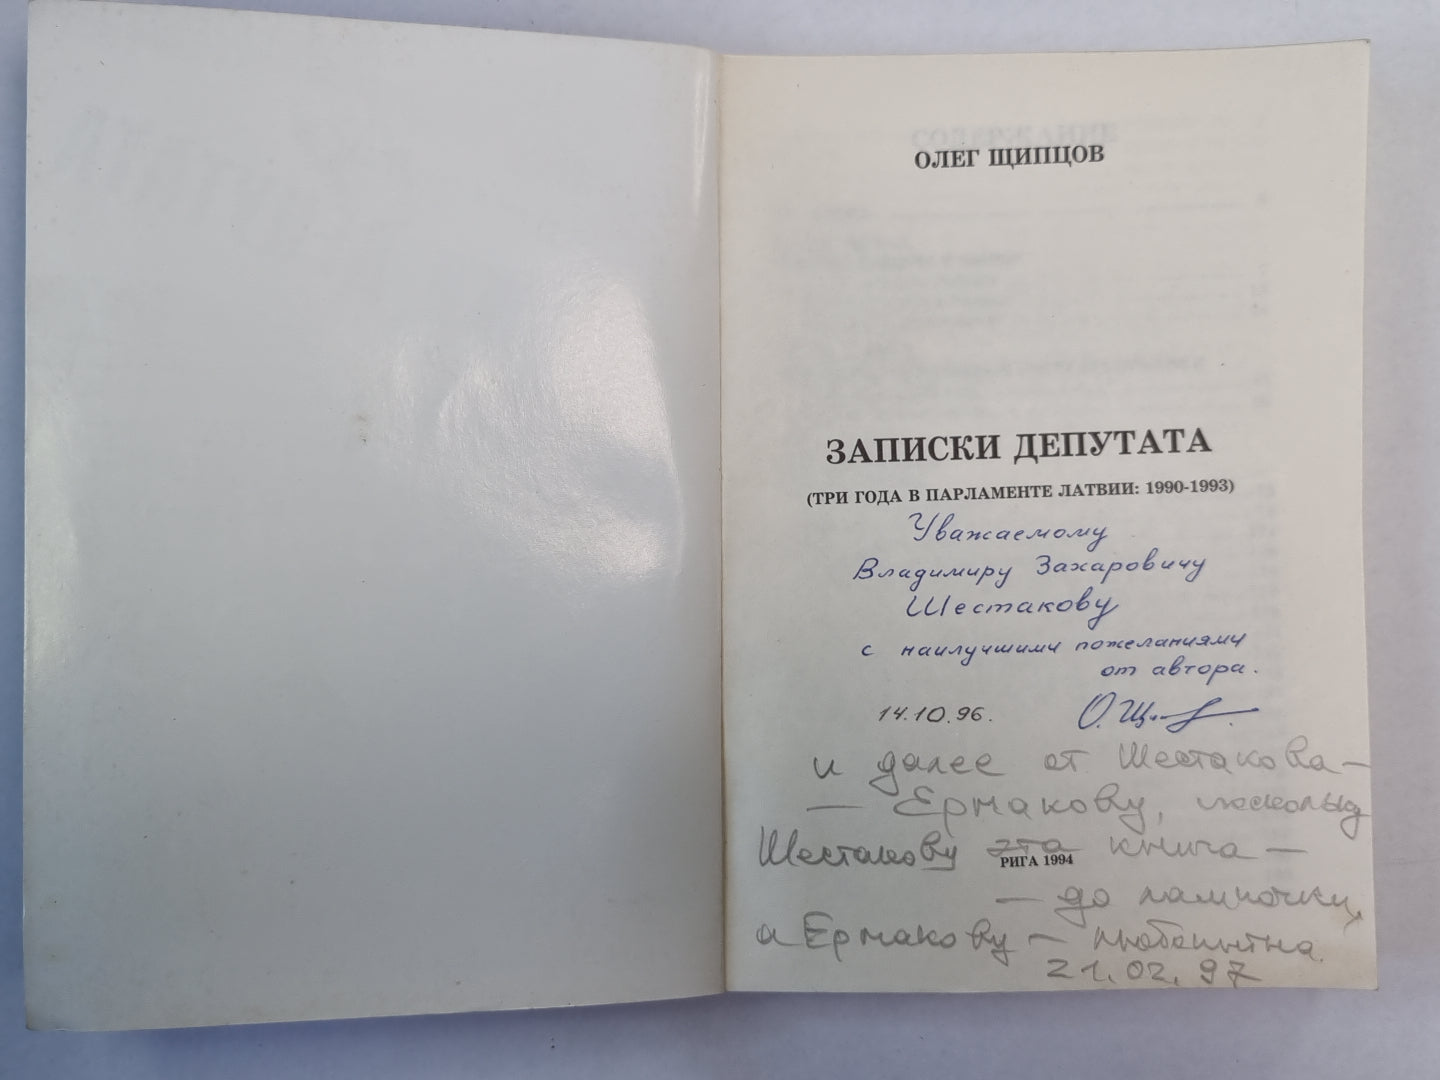 ОЛЕГ ЩИПЦОВ
ЗАПИСКИ ДЕПУТАТА
(ТРИ ГОДА В ПАРЛАМЕНТЕ ЛАТВИИ: 1990-1993)
Уважаемому
Владимиру Захаровичу
Шестакову
с наилучшими пожеланиями
от автора.
14.10.96.
и далее от Шестакова —
— Ермакову, поскольку
Шестакову эта книга —
РИГА 1994
— до лампочки,
а Ермакову — любопытна.
21.02.97